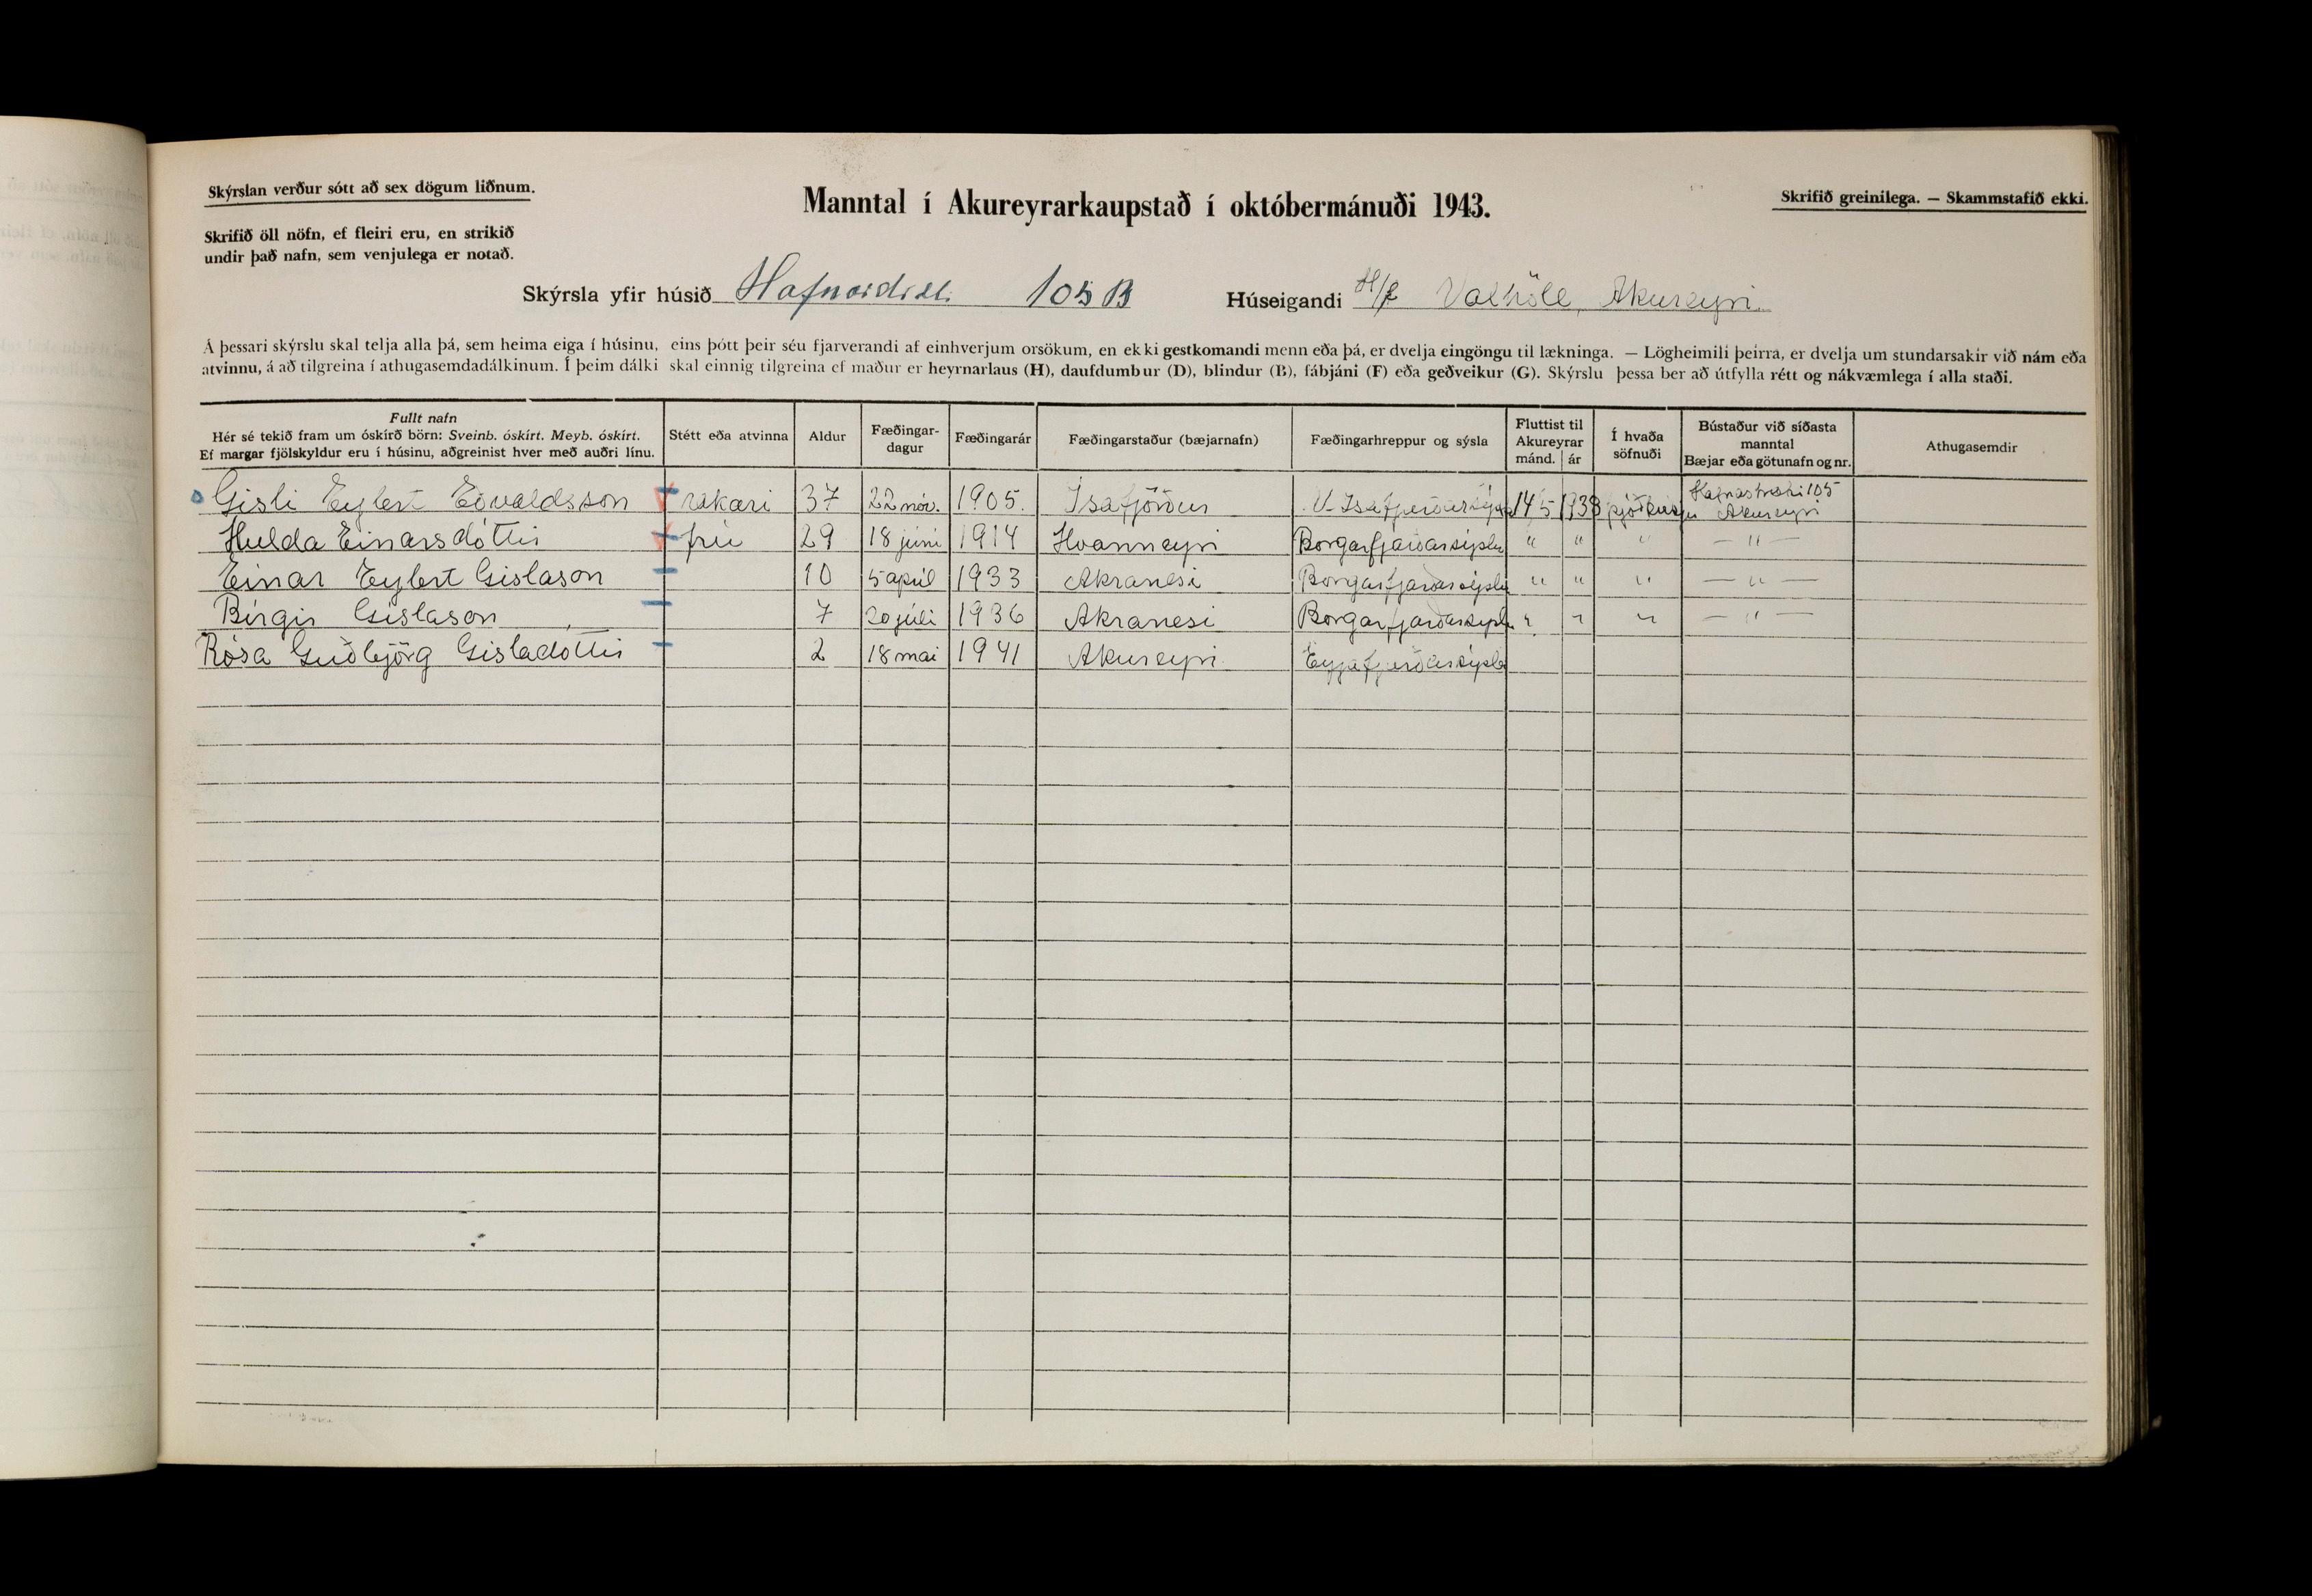 Skýrslan verður sótt að sex dögum liðnum.
Manntal í Akureyrarkaupstað í októbermánuði 1943.
Skrifið greinilega. — Skammstafið ekki.
Skrifið öll nöfn, ef fleiri eru, en strikið
undir það nafn, sem venjulega er notað.
Skýrsla yfir húsið 105 B Húseigandi H/f Valhöll, Akureyri.
Á þessari skýrslu skal telja alla þá, sem heima eiga í húsinu, eins þótt þeir séu fjarverandi af einhverjum orsökum, en ekki gestkomandi menn eða þá, er dvelja eingöngu til lækninga. — Lögheimili þeirra, er dvelja um stundarsakir við nám eða
atvinnu, á að tilgreina í athugasemdadálkinum. Í þeim dálki skal einnig tilgreina ef maður er heyrnarlaus (H), daufdumbur (D), blindur (B), fábjáni (F) eða geðveikur (G). Skýrslu þessa ber að útfylla rétt og nákvæmlega í alla staði.
Fullt nafn
Hér sé tekið fram um óskírð börn: Sveinb. óskírt. Meyb. óskírt.
Ef margar fjölskyldur eru í húsinu, aðgreinist hver með auðri línu.
Stétt eða atvinna
Aldur
Fæðingar-
dagur
Fæðingarár
Fæðingarstaður (bæjarnafn)
Fæðingarhreppur og sýsla
Fluttist til
Akureyrar
mánd. ár
Í hvaða
söfnuði
Bústaður við síðasta
manntal
Bæjar eða götunafn og nr.
Athugasemdir
Gisli Eylert Eðvaldsson rakari 37 22 nóv. 1905. Ísafjörður V-Ísafjarðarsýsla 14/5 1938 þjóðkirkju Hafnarstræti 105
Akureyri
Hulda Einarsdóttir frú 29 18 júní 1914 Hvanneyri Borgarfjarðarsýslu " " " — " —
Einar Eylert Gíslason 10 5 apríl 1933 Akranesi Borgarfjarðarsýslu " " " — " —
Birgir Gíslason 7 20 júlí 1936 Akranesi Borgarfjarðarsýslu " " " — " —
Rósa Guðbjörg Gísladóttir 2 18 maí 1941 Akureyri Eyjafjarðarsýslu